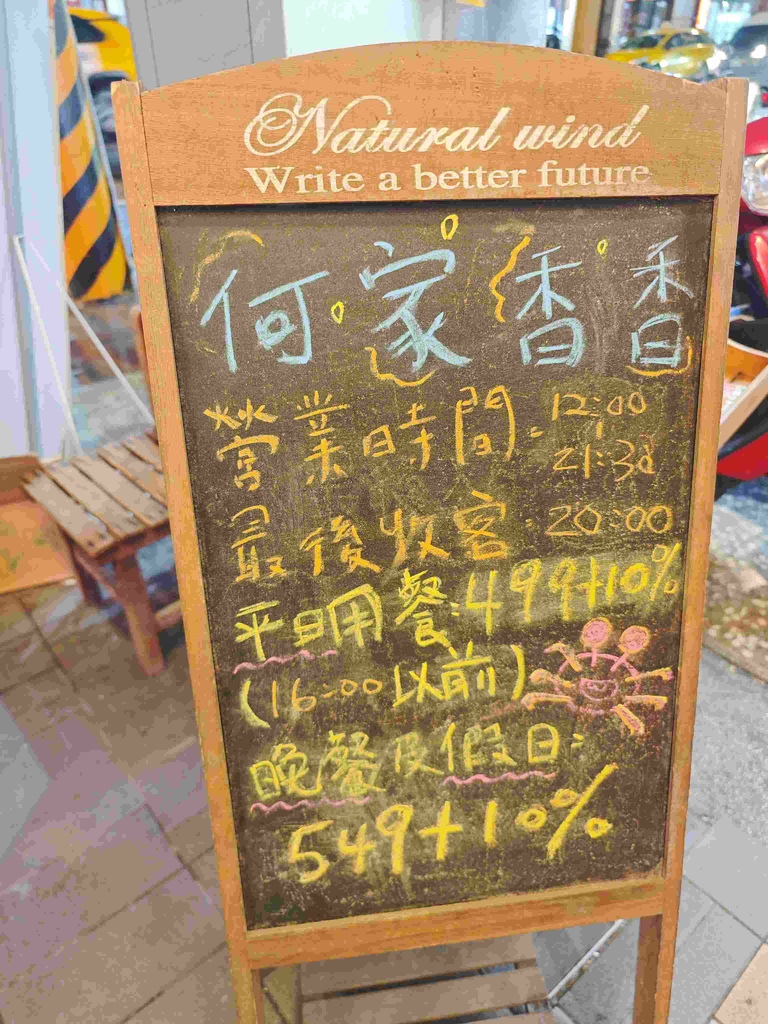 Natural wind
Write a better future
何家香香
營業時間:12:00
21:30
最後收客:20:00
平日用餐:499+10%
(16:00以前)
晚餐及假日:
549+10%